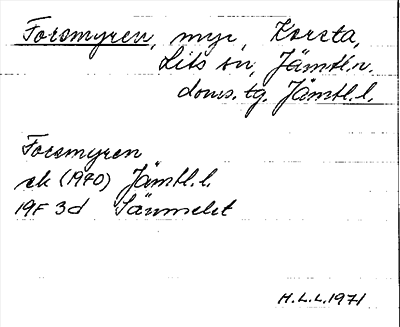 Forsmyren, myr, Korsta,
Lits sn, Jämtl.n.
doms.tg. Jämtl.l.
Forsmyren
ek (1970) Jämtl.l.
19F 3d Sännsjöet
H.L.L.1971